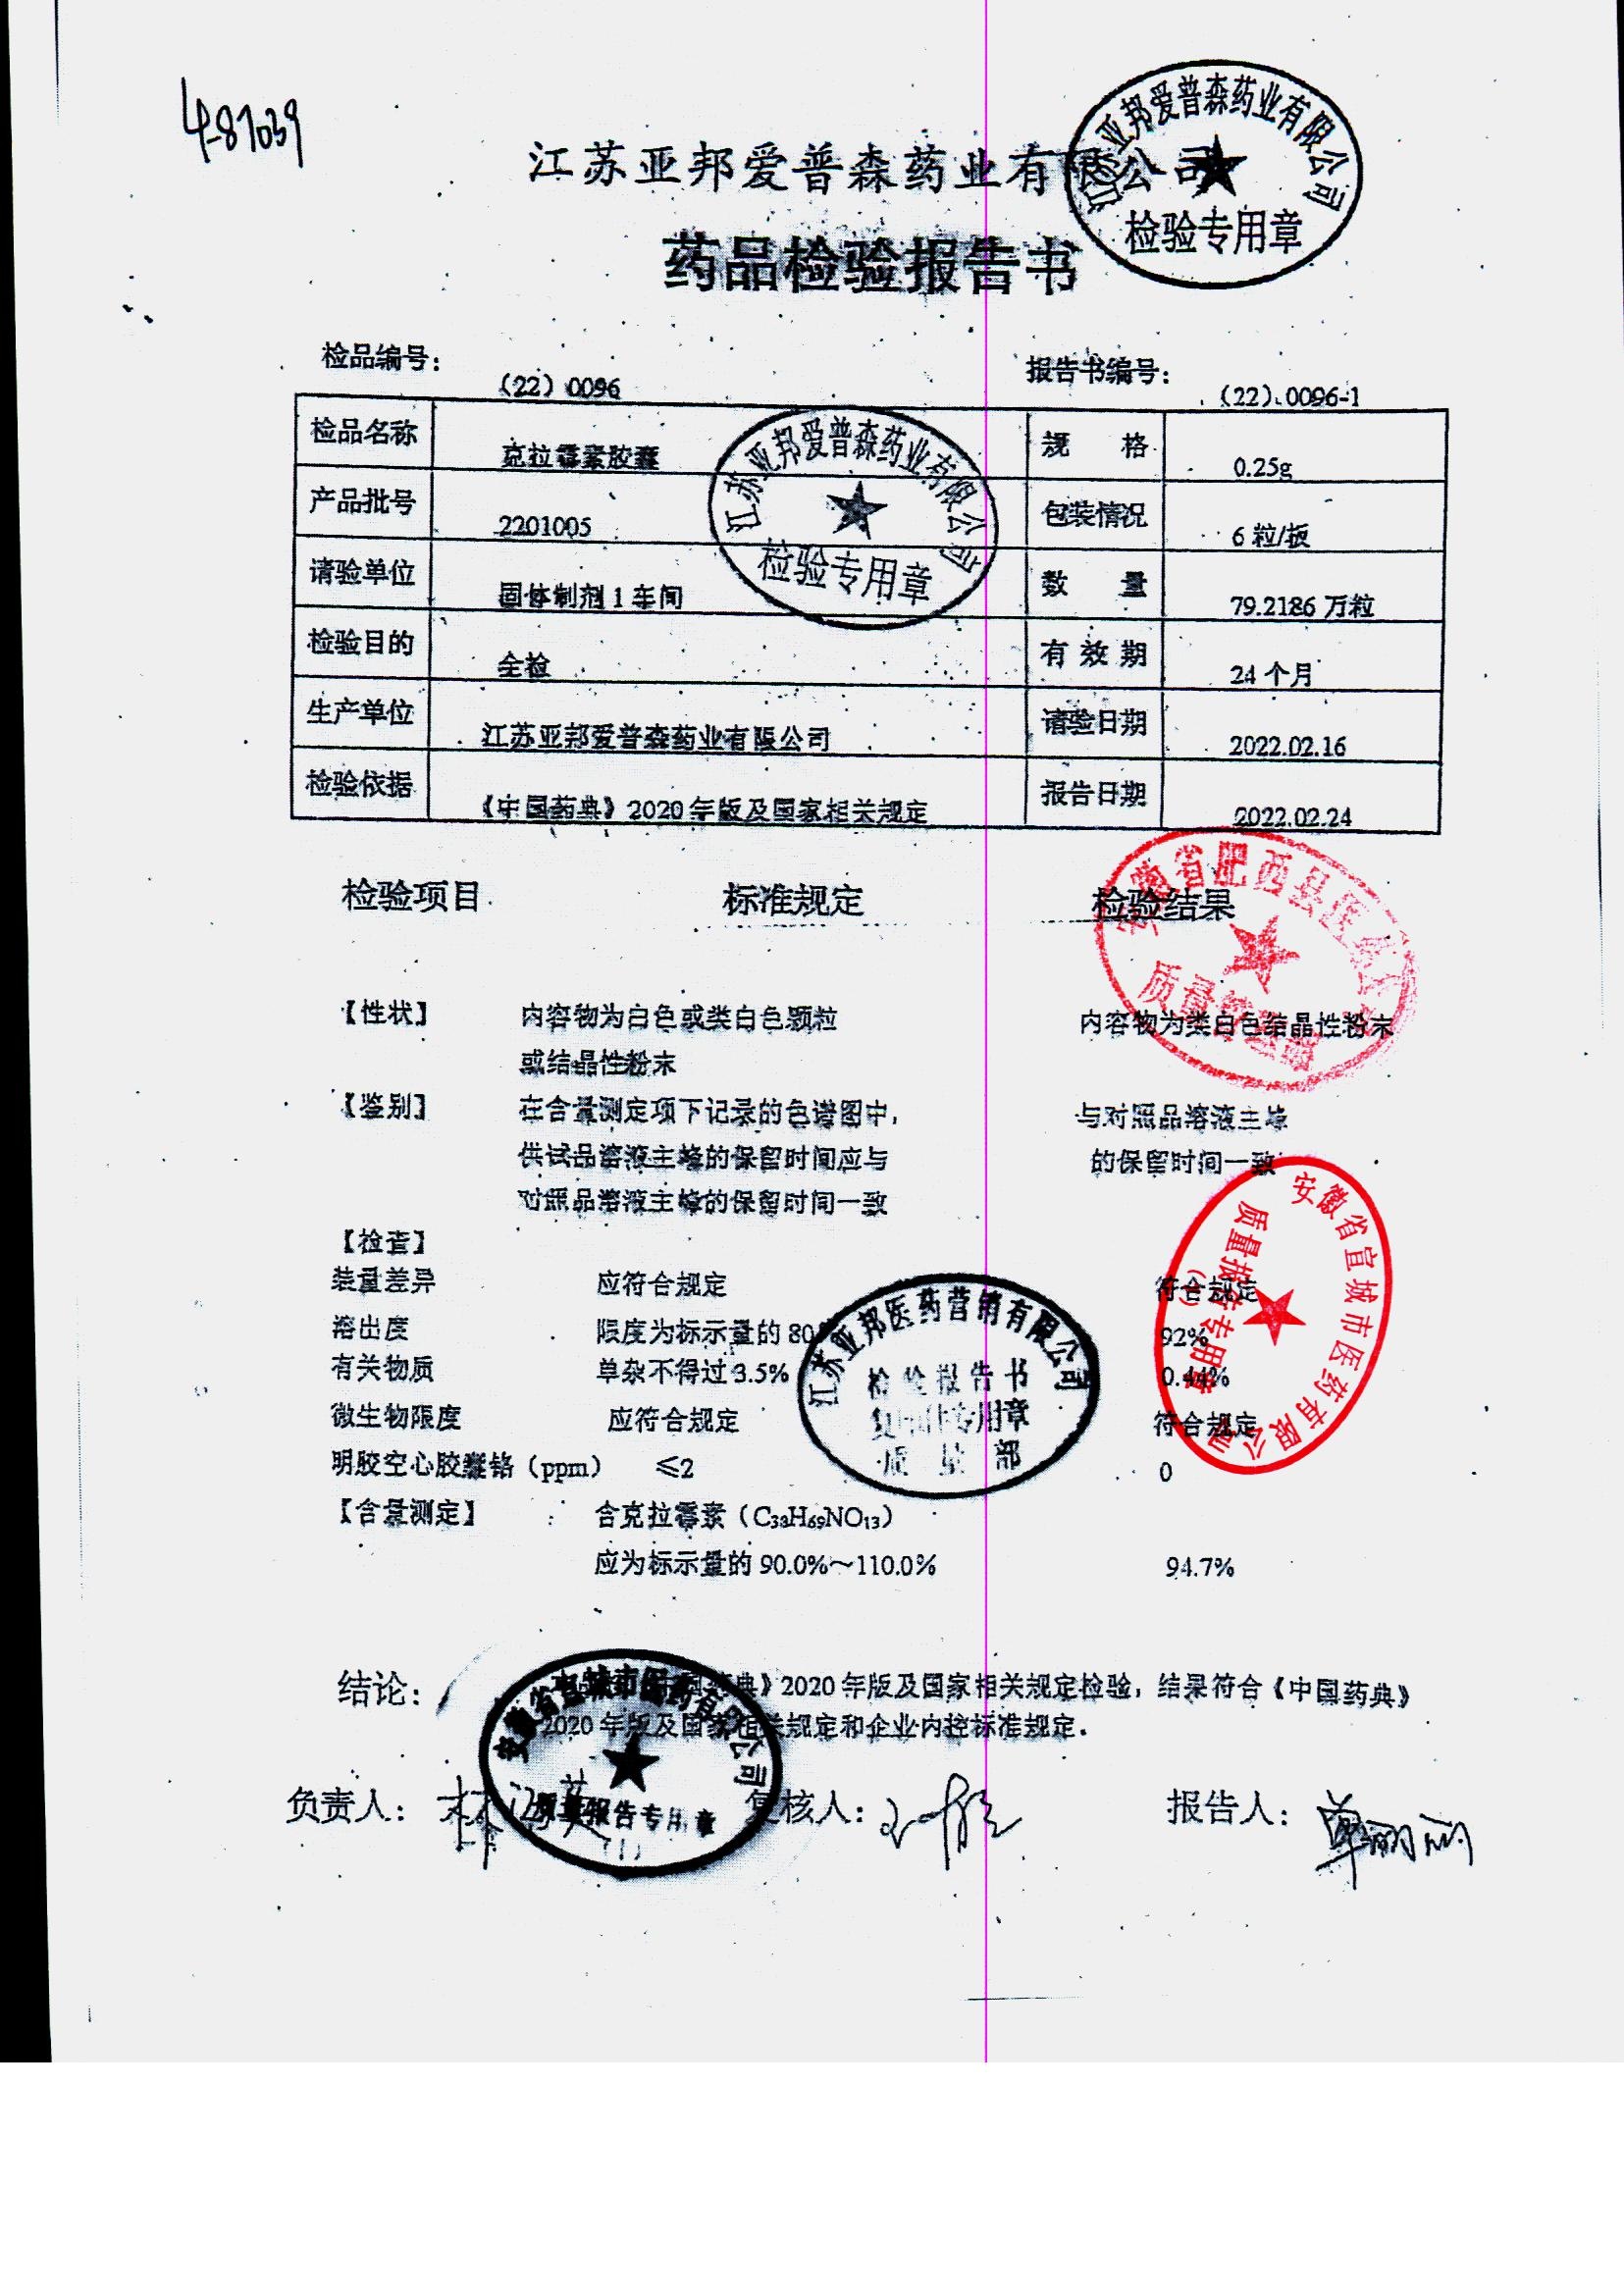 4-87039
江苏亚邦爱普森药业有限公司
江苏亚邦爱普森药业有限公司
检验专用章
药品检验报告书
检品编号: (22) 0096 报告书编号: (22) 0096-1
检品名称 克拉霉素胶囊 规 格 0.25g
产品批号 2201005 包装情况 6 粒/板
请验单位 固体制剂 1 车间 数 量 79.2186 万粒
检验目的 全检 有 效 期 24 个月
生产单位 江苏亚邦爱普森药业有限公司 请验日期 2022.02.16
检验依据 《中国药典》2020 年版及国家相关规定 报告日期 2022.02.24
江苏亚邦爱普森药业有限公司
检验专用章
检验项目 标准规定 检验结果
安徽省肥西县医药
质量
【性状】 内容物为白色或类白色颗粒 内容物为类白色结晶性粉末
或结晶性粉末
【鉴别】 在含量测定项下记录的色谱图中, 与对照品溶液主峰
供试品溶液主峰的保留时间应与 的保留时间一致
对照品溶液主峰的保留时间一致
【检查】
装量差异 应符合规定 符合规定
溶出度 限度为标示量的 80 92%
有关物质 单杂不得过 3.5% 0.44%
微生物限度 应符合规定 符合规定
明胶空心胶囊铬（ppm） ≤2 0
【含量测定】 含克拉霉素（C₃₈H₆₉NO₁₃）
应为标示量的 90.0%～110.0% 94.7%
江苏亚邦医药营销有限公司
检验报告书
复印件专用章
质量部
安徽省宣城市医药有限公司
质量报告专用章
(1)
结论: 典》2020 年版及国家相关规定检验, 结果符合《中国药典》
2020 年版及国家相关规定和企业内控标准规定.
安徽省宣城市医药有限公司
质量报告专用章
(1)
负责人: 复核人: 报告人: